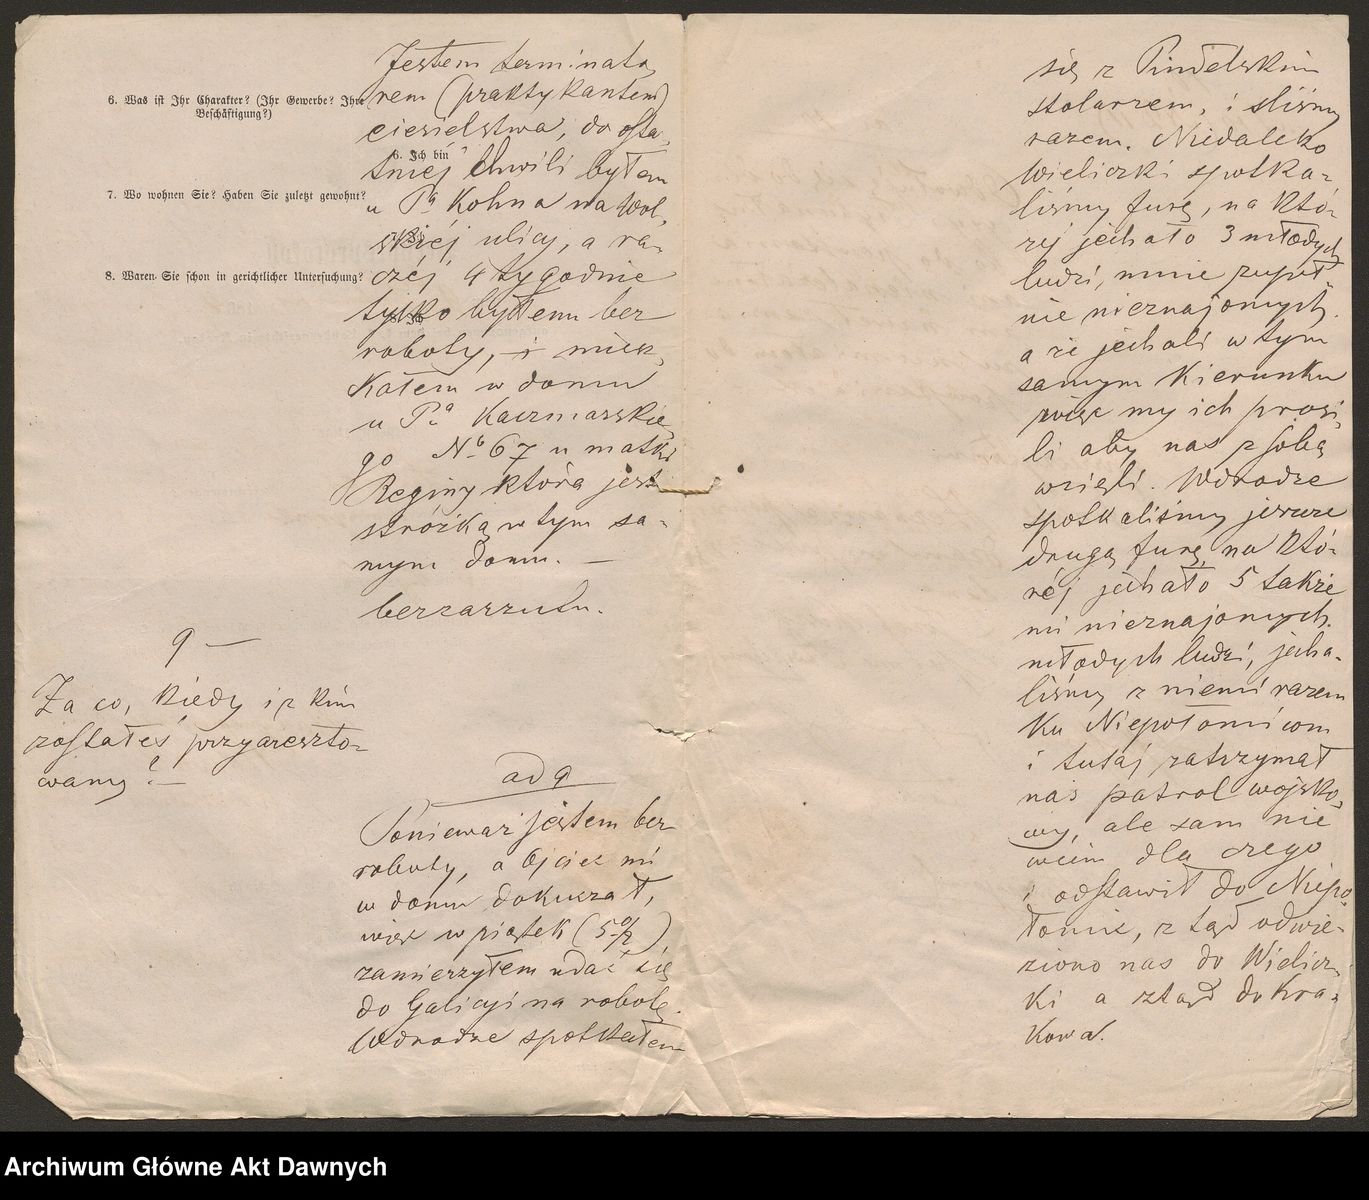 6. Was ist Ihr Charakter? (Ihr Gewerbe? Ihre
Beschäftigung?)
6. Ich bin
7. Wo wohnen Sie? Haben Sie zuletzt gewohnt?
8. Waren Sie schon in gerichtlicher Untersuchung?
Jestem terminato,
rem (praktykantem)
ciesielstwa, do osta,
tniéj chwili byłem
u Pa Kohna na Wol,
skiéj ulicy, a ra-
czéj 4 tygodnie
tylko byłem bez
roboty, i miesz,
kałem w domu
u Pa Kaczmarskie,
go No 67 u matki
Reginy która jest
stróżką w tym sa-
mym domu. —
bezzarzutu.
9 —
Za co, kiedy i z kim
zostałeś przyareszto-
wany? —
ad 9
Ponieważ jestem bez
roboty, a Ojciec mi
w domu dokuczał,
więc w piątek (5/2),
zamierzyłem udać się
do Galicyi na robotę.
Wdrodze spotkałem
się z Pindelskim
stolarzem, i sliśmy
razem. Niedaleko
Wieliczki spotka-
liśmy furę, na któ-
réj jechało 3 młodych
ludzi, mnie zupeł-
nie nieznajomych.
a że jechali w tym
samym kierunku
więc my ich prosi,
li aby nas z sobą
wzięli. Wdrodze
spotkalismy jeszcze
drugą furę, na któ-
réj jechało 5 także
mi nieznajomych.
młodych ludzi, jecha-
liśmy z niemi razem
ku Niepołomicom
i tutaj zatrzymał
nas patrol wojsko,
wy, ale sam nie
wiem dla czego
i odstawił do Niepo,
łomic, z tąd odwie-
ziono nas do Wielicz,
ki a ztąd do Kra-
kowa.
Archiwum Główne Akt Dawnych